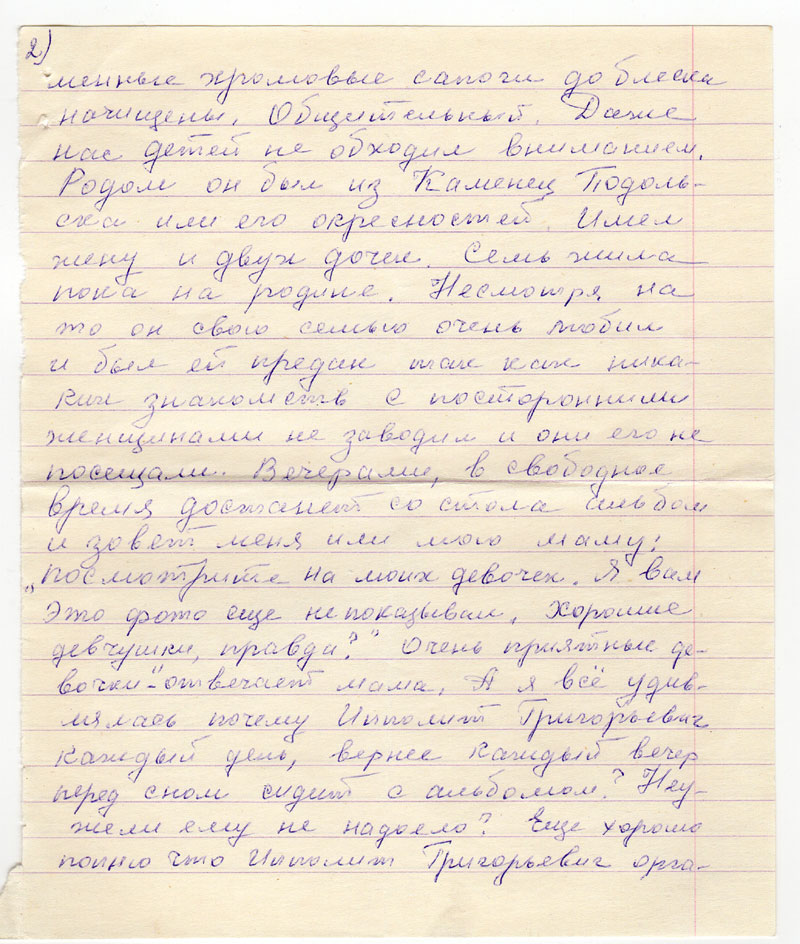 2)
менные хромовые сапоги до блеска
начищены. Общительный. Даже
нас детей не обходил вниманием.
Родом он был из Каменец Подоль-
ска или его окресностей. Имел
жену и двух дочек. Семь жила
пока на родине. Несмотря на
то он свою семью очень любил
и был ей предан так как ника-
ких знакомств с посторонними
женщинами не заводил и они его не
посещали. Вечерами, в свободное
время достанет со стола альбом
и зовет меня или мою маму:
„посмотрите на моих девочек. Я вам
это фото еще не показывал, хорошие
девчушки, правда?" Очень приятные де-
вочки"- отвечает мама. А я всё удив-
лялась почему Ипполит Григорьевич
каждый день, вернее каждый вечер
перед сном сидит с альбомом? Неу-
жели ему не надоело? Еще хорошо
помню что Ипполит Григорьевич орга-